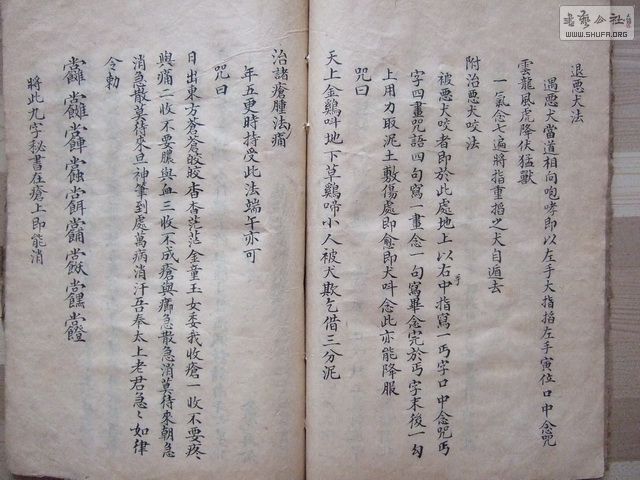 書法公社
WWW.SHUFA.ORG
退惡犬法
遇惡犬當道相向咆哮即以左手大指掐左手寅位口中念咒
雲龍風虎降伏猛獸
一氣念七遍將指重掐之犬自遁去
附治惡犬咬法
被惡犬咬者即於此處地上以右手中指寫一丐字口中念咒丐
字四畫咒語四句寫一畫念一句寫畢念完於丐字末後一勾
上用力取泥土敷傷處即愈即犬叫念此亦能降服
咒曰
天上金鷄叫地下草鷄啼小人被犬欺乞借三分泥
治諸瘡腫法痛
年五更時持受此法端午亦可
咒曰
日出東方蒼蒼皎皎杳杳茫茫金童玉女委我收瘡一收不要疼
與痛二收不要膿與血三收不成瘡與癤急散急消莫待來朝急
消急散莫待來旦神筆到處萬病消汗吾奉太上老君急〻如律
令勅
將此九字秘書在瘡上即能消